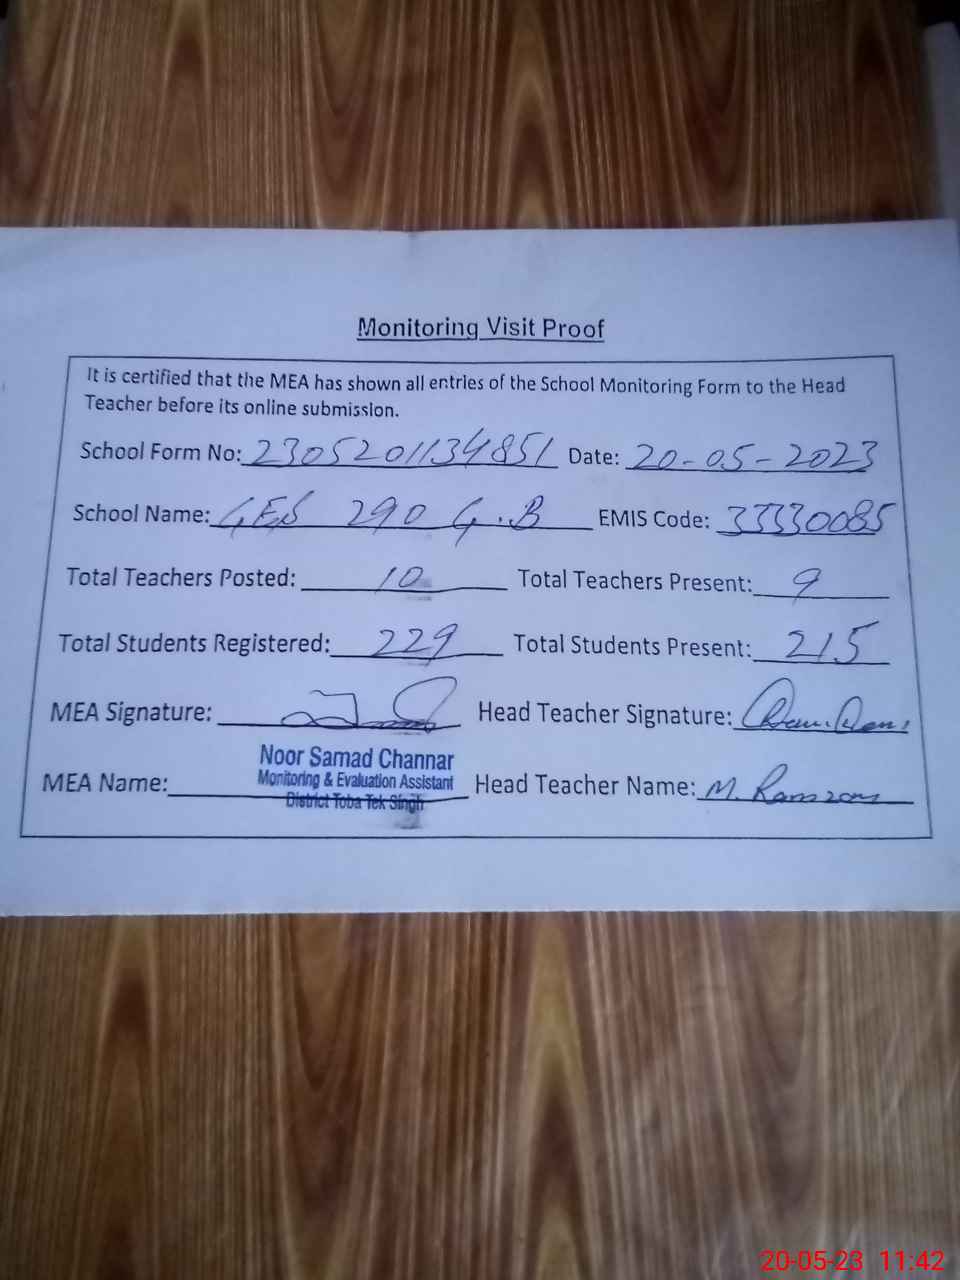 Monitoring Visit Proof
It is certified that the MEA has shown all entries of the School Monitoring Form to the Head
Teacher before its online submission.
School Form No: 2305201134851 Date: 20-05-2023
School Name: GES 290 G.B EMIS Code: 33330085
Total Teachers Posted: 10 Total Teachers Present: 9
Total Students Registered: 229 Total Students Present: 215
MEA Signature: Head Teacher Signature:
Noor Samad Channar
MEA Name: Monitoring & Evaluation Assistant Head Teacher Name: M. Ramzan
District Toba Tek Singh
20-05-23 11:42